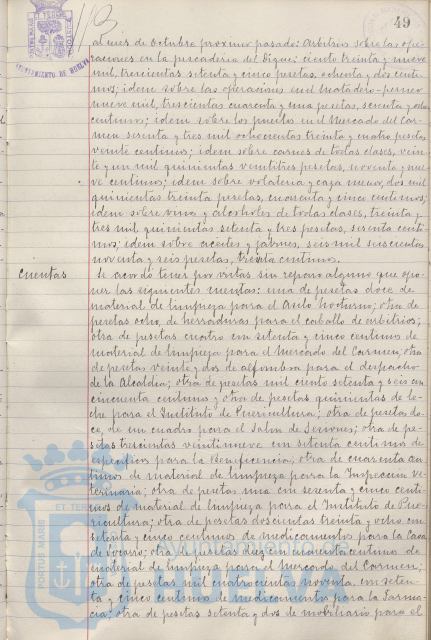 49
AYUNTAMIENTO DE HUELVA
al mes de Octubre próximo pasado: Arbitrios sobre las ope-
raciones en la pescadería del Dique; ciento treinta y nueve
mil, trescientas setenta y cinco pesetas, ochenta y dos centi-
mos; idem sobre las operaciones en el Matadero
nueve mil, trescientas cuarenta y una pesetas, sesenta y
centimos; idem sobre los puestos en el Mercado del Car-
men sesenta y tres mil ochocientas treinta y cuatro pesetas
veinte centimos; idem sobre carnes de todas clases, vein-
te y un mil quinientas veintitres pesetas, noventa y nue-
ve centimos; idem sobre volateria y caza menor, dos mil
quinientas treinta pesetas, cuarenta y cinco centimos;
idem sobre vinos y alcoholes de todas clases, treinta y
tres mil, quinientas setenta y tres pesetas, sesenta centi-
mos; idem sobre aceites y jabones, seis mil seiscientas
noventa y seis pesetas, treinta centimos.
Cuentas
Se acordó tener por vistas sin reparo alguno que opo-
ner las siguientes cuentas: una de pesetas doce de
material de limpieza para el Auto nocturno; otra de
pesetas ocho, de herraduras para el caballo de arbitrios;
otra de pesetas cuatro con setenta y cinco centimos de
material de limpieza para el Mercado del Carmen; otra
de pesetas veinte y dos de alfombra para el despacho
de la Alcaldia; otra de pesetas mil ciento setenta y seis con
cincuenta centimos y otra de pesetas quinientas de le-
che para el Instituto de Puericultura; otra de pesetas do-
ce, de un cuadro para el Salon de Sesiones; otra de pe-
setas trescientas veintinueve con setenta centimos de
especificos para la Beneficencia; otra de cuarenta cen-
timos de material de limpieza para la Inspeccion Ve-
terinaria; otra de pesetas una con sesenta y cinco centi-
mos de material de limpieza para el Instituto de Pue-
ricultura; otra de pesetas doscientas treinta y ocho con
setenta y cinco centimos de medicamentos para la Casa
de Socorro; otra de pesetas diez con cuarenta centimos de
material de limpieza para el Mercado del Carmen;
otra de pesetas mil cuatrocientas noventa, con seten-
ta y cinco centimos de medicamentos para la Farma-
cia; otra de pesetas setenta y dos de mobiliario para el
PORTUS MARIS ET TERRAE
Ayuntamiento
HUELVA